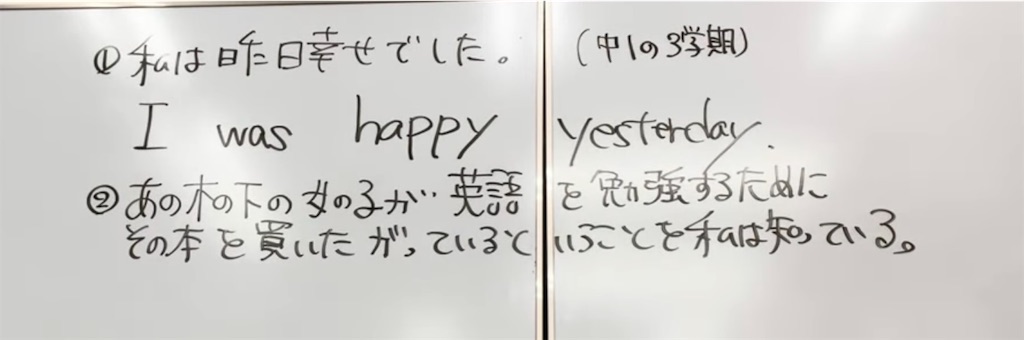 ①私は昨日幸せでした。 (中1の3学期)
I was happy yesterday.
②あの木の下の女の子が英語を勉強するために
その本を買いたがっているということを私は知っている。